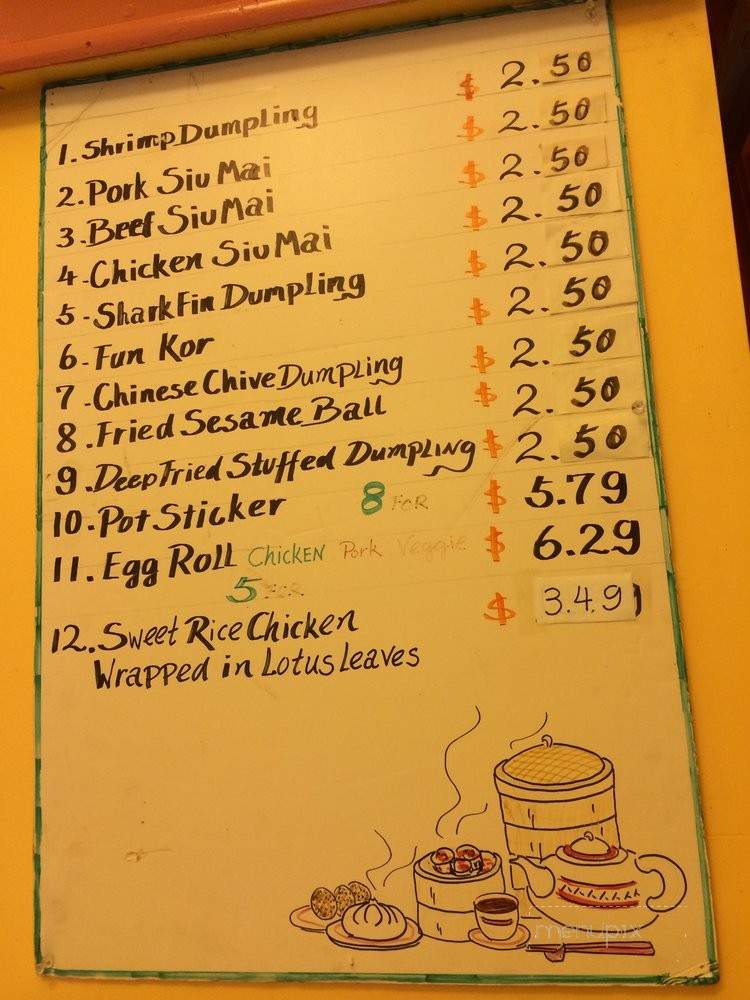 1. Shrimp Dumpling $ 2.50
2. Pork Siu Mai $ 2.50
3. Beef Siu Mai $ 2.50
4. Chicken Siu Mai $ 2.50
5. Shark Fin Dumpling $ 2.50
6. Fun Kor $ 2.50
7. Chinese Chive Dumpling $ 2.50
8. Fried Sesame Ball $ 2.50
9. Deep Fried Stuffed Dumpling $ 2.50
10. Pot Sticker 8 FOR $ 5.79
11. Egg Roll Chicken Pork Veggie $ 6.29
5 FOR
12. Sweet Rice Chicken $ 3.49
Wrapped in Lotus Leaves
menupix